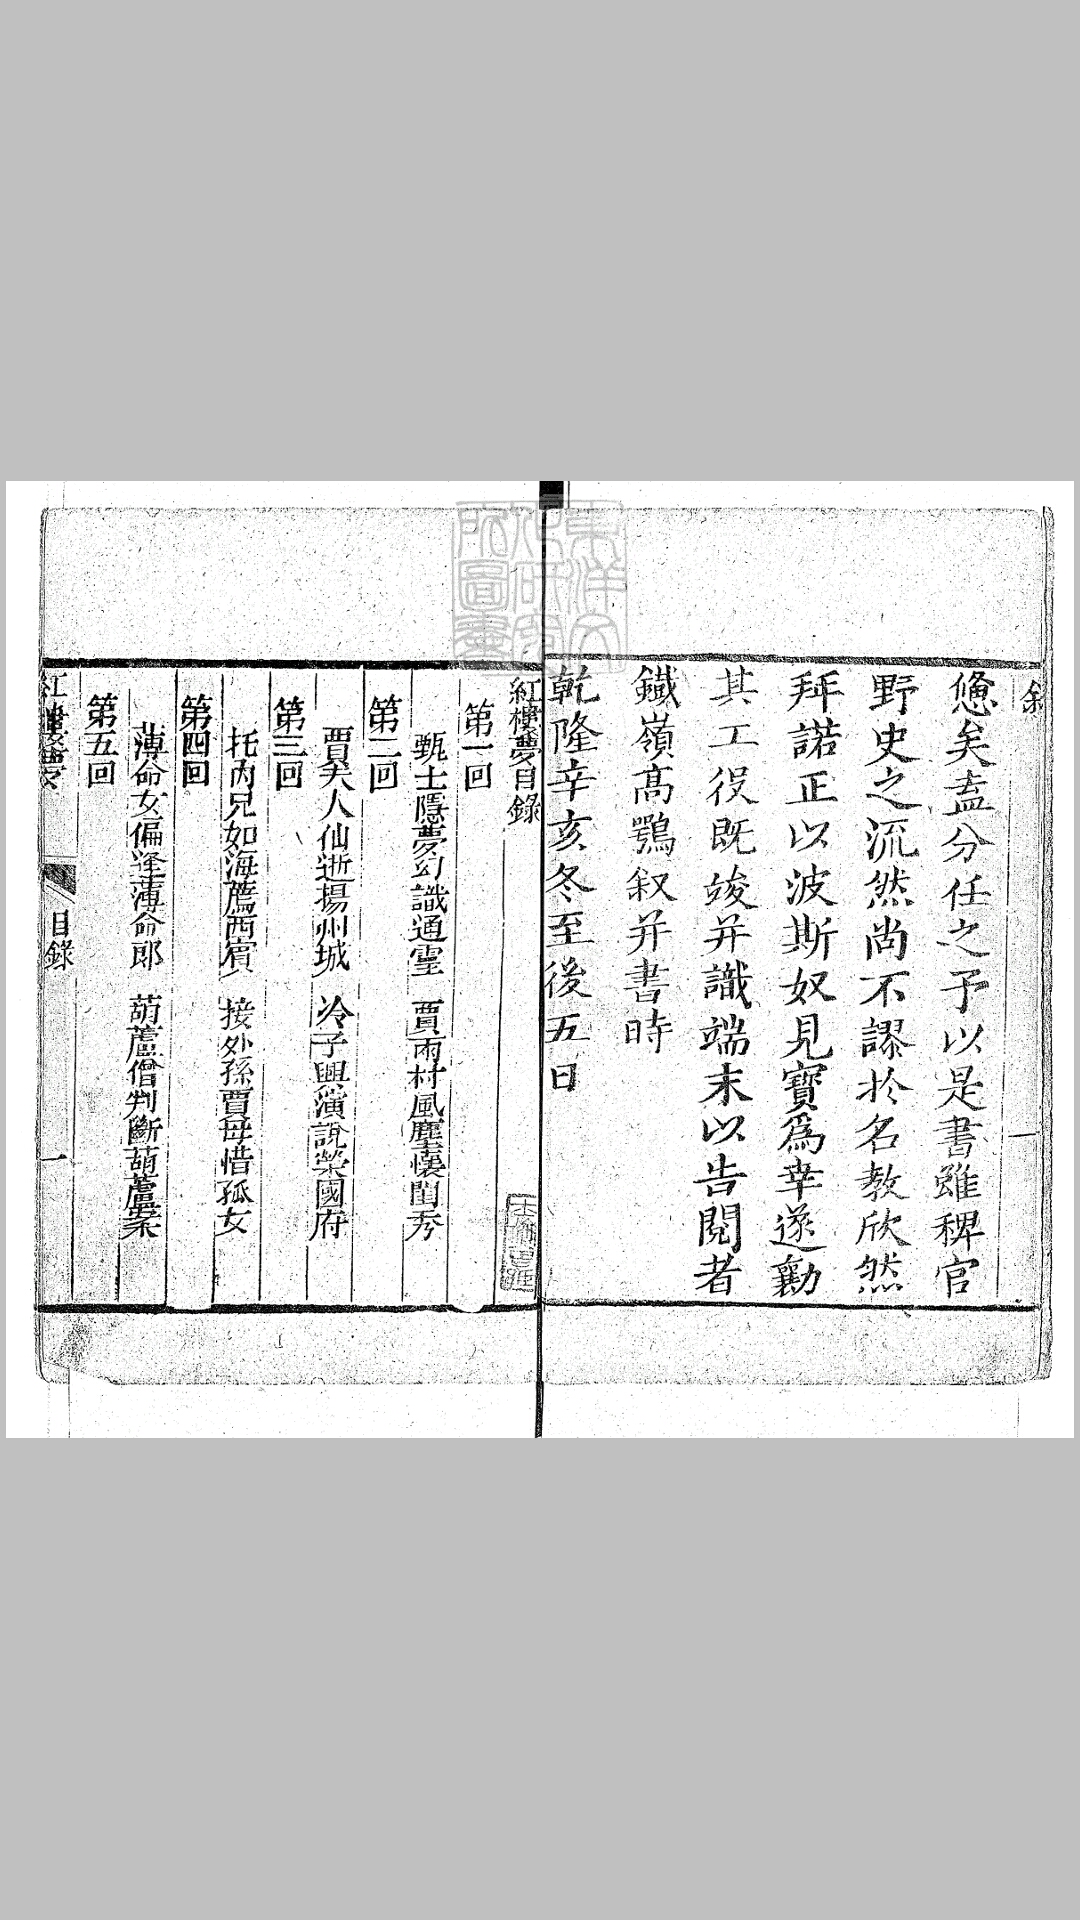 叙
一
憊矣盍分任之予以是書雖稗官
野史之流然尚不謬扵名教欣然
拜諾正以波斯奴見寳爲幸遂勷
其工役既竣并識端末以告閱者
鐵嶺高鶚叙并書時
乾隆辛亥冬至後五日
紅樓夢目錄
第一回
甄士隱夢幻識通靈　賈雨村風塵懷閨秀
第二回
賈夫人仙逝揚州城　冷子興演說榮國府
第三回
托內兄如海薦西賓　接外孫賈母惜孤女
第四回
薄命女偏逢薄命郎　葫蘆僧判斷葫蘆案
第五回
紅樓夢　目錄　一
東洋文化研究所圖書